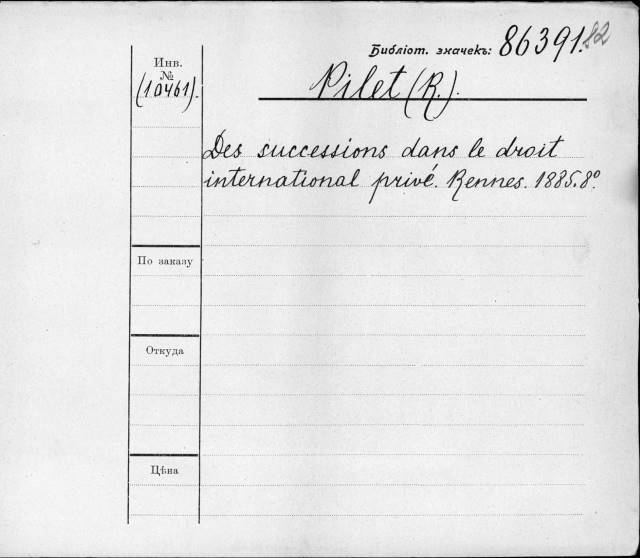 Библіот. значекъ: 86391.82
Инв.
№
(10461).
Pilet (R.).
Des successions dans le droit
international privé. Rennes. 1885. 8º.
По заказу
Откуда
Цѣна